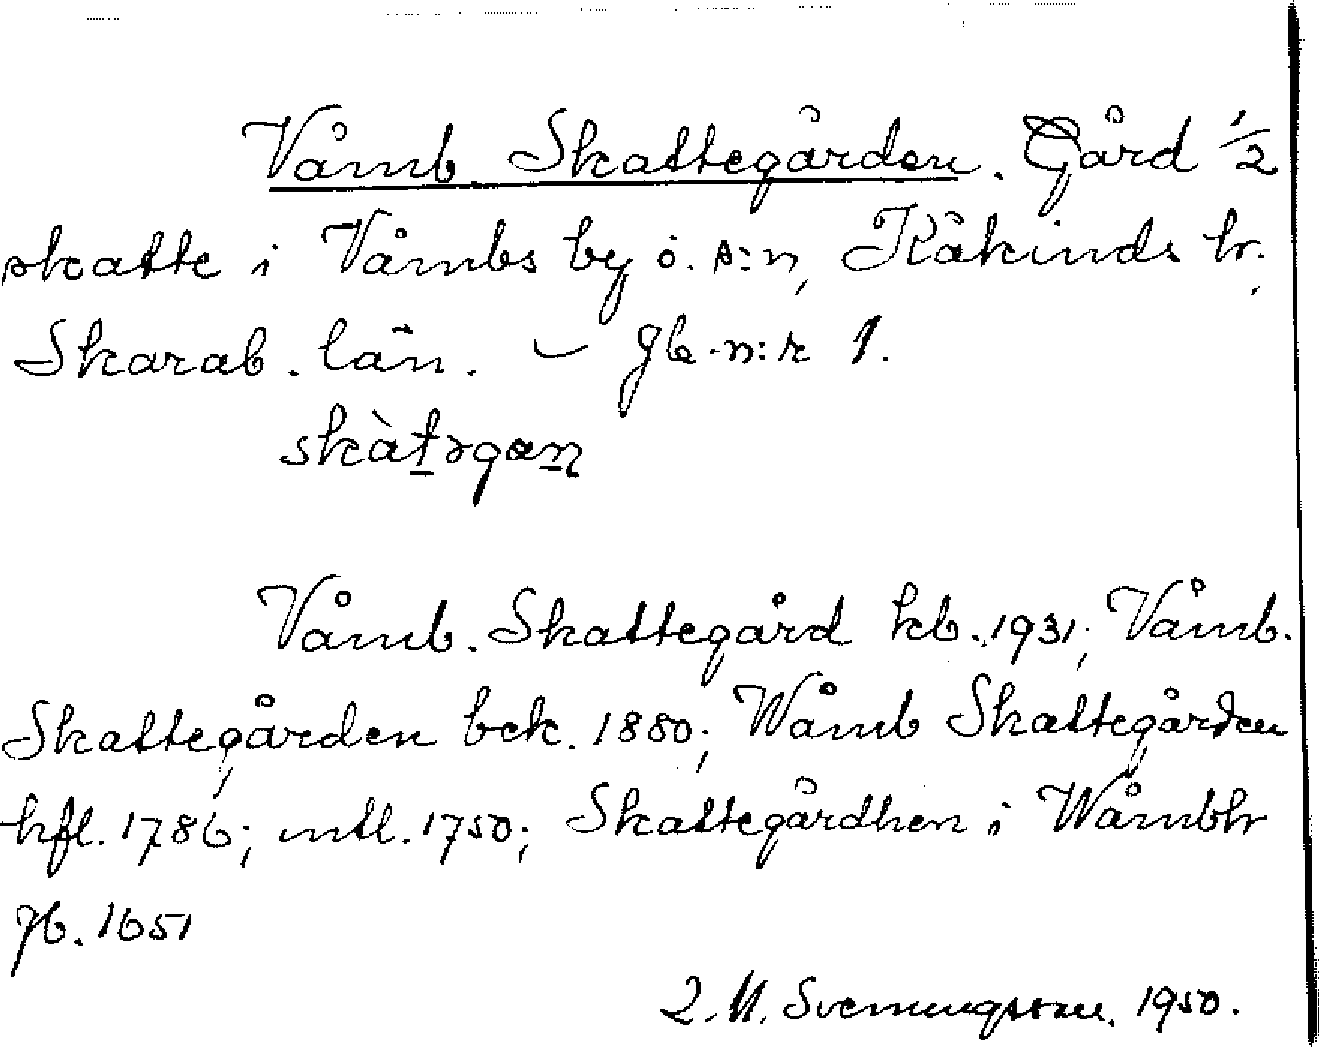 Våmb. Skattegården. Gård 1/2
skatte i Våmbs by o. s:n, Kåkinds hr.,
Skarab. län. – Jb.n:r 1.
skàt̠əgan̠
Våmb. Skattegård kb. 1931; Våmb.
Skattegården bek. 1880; Wåmb Skattegården
hfl. 1786; mtl. 1750; Skattegårdhen i Wåmbh
Jb. 1651
Svenningsson. 1950.